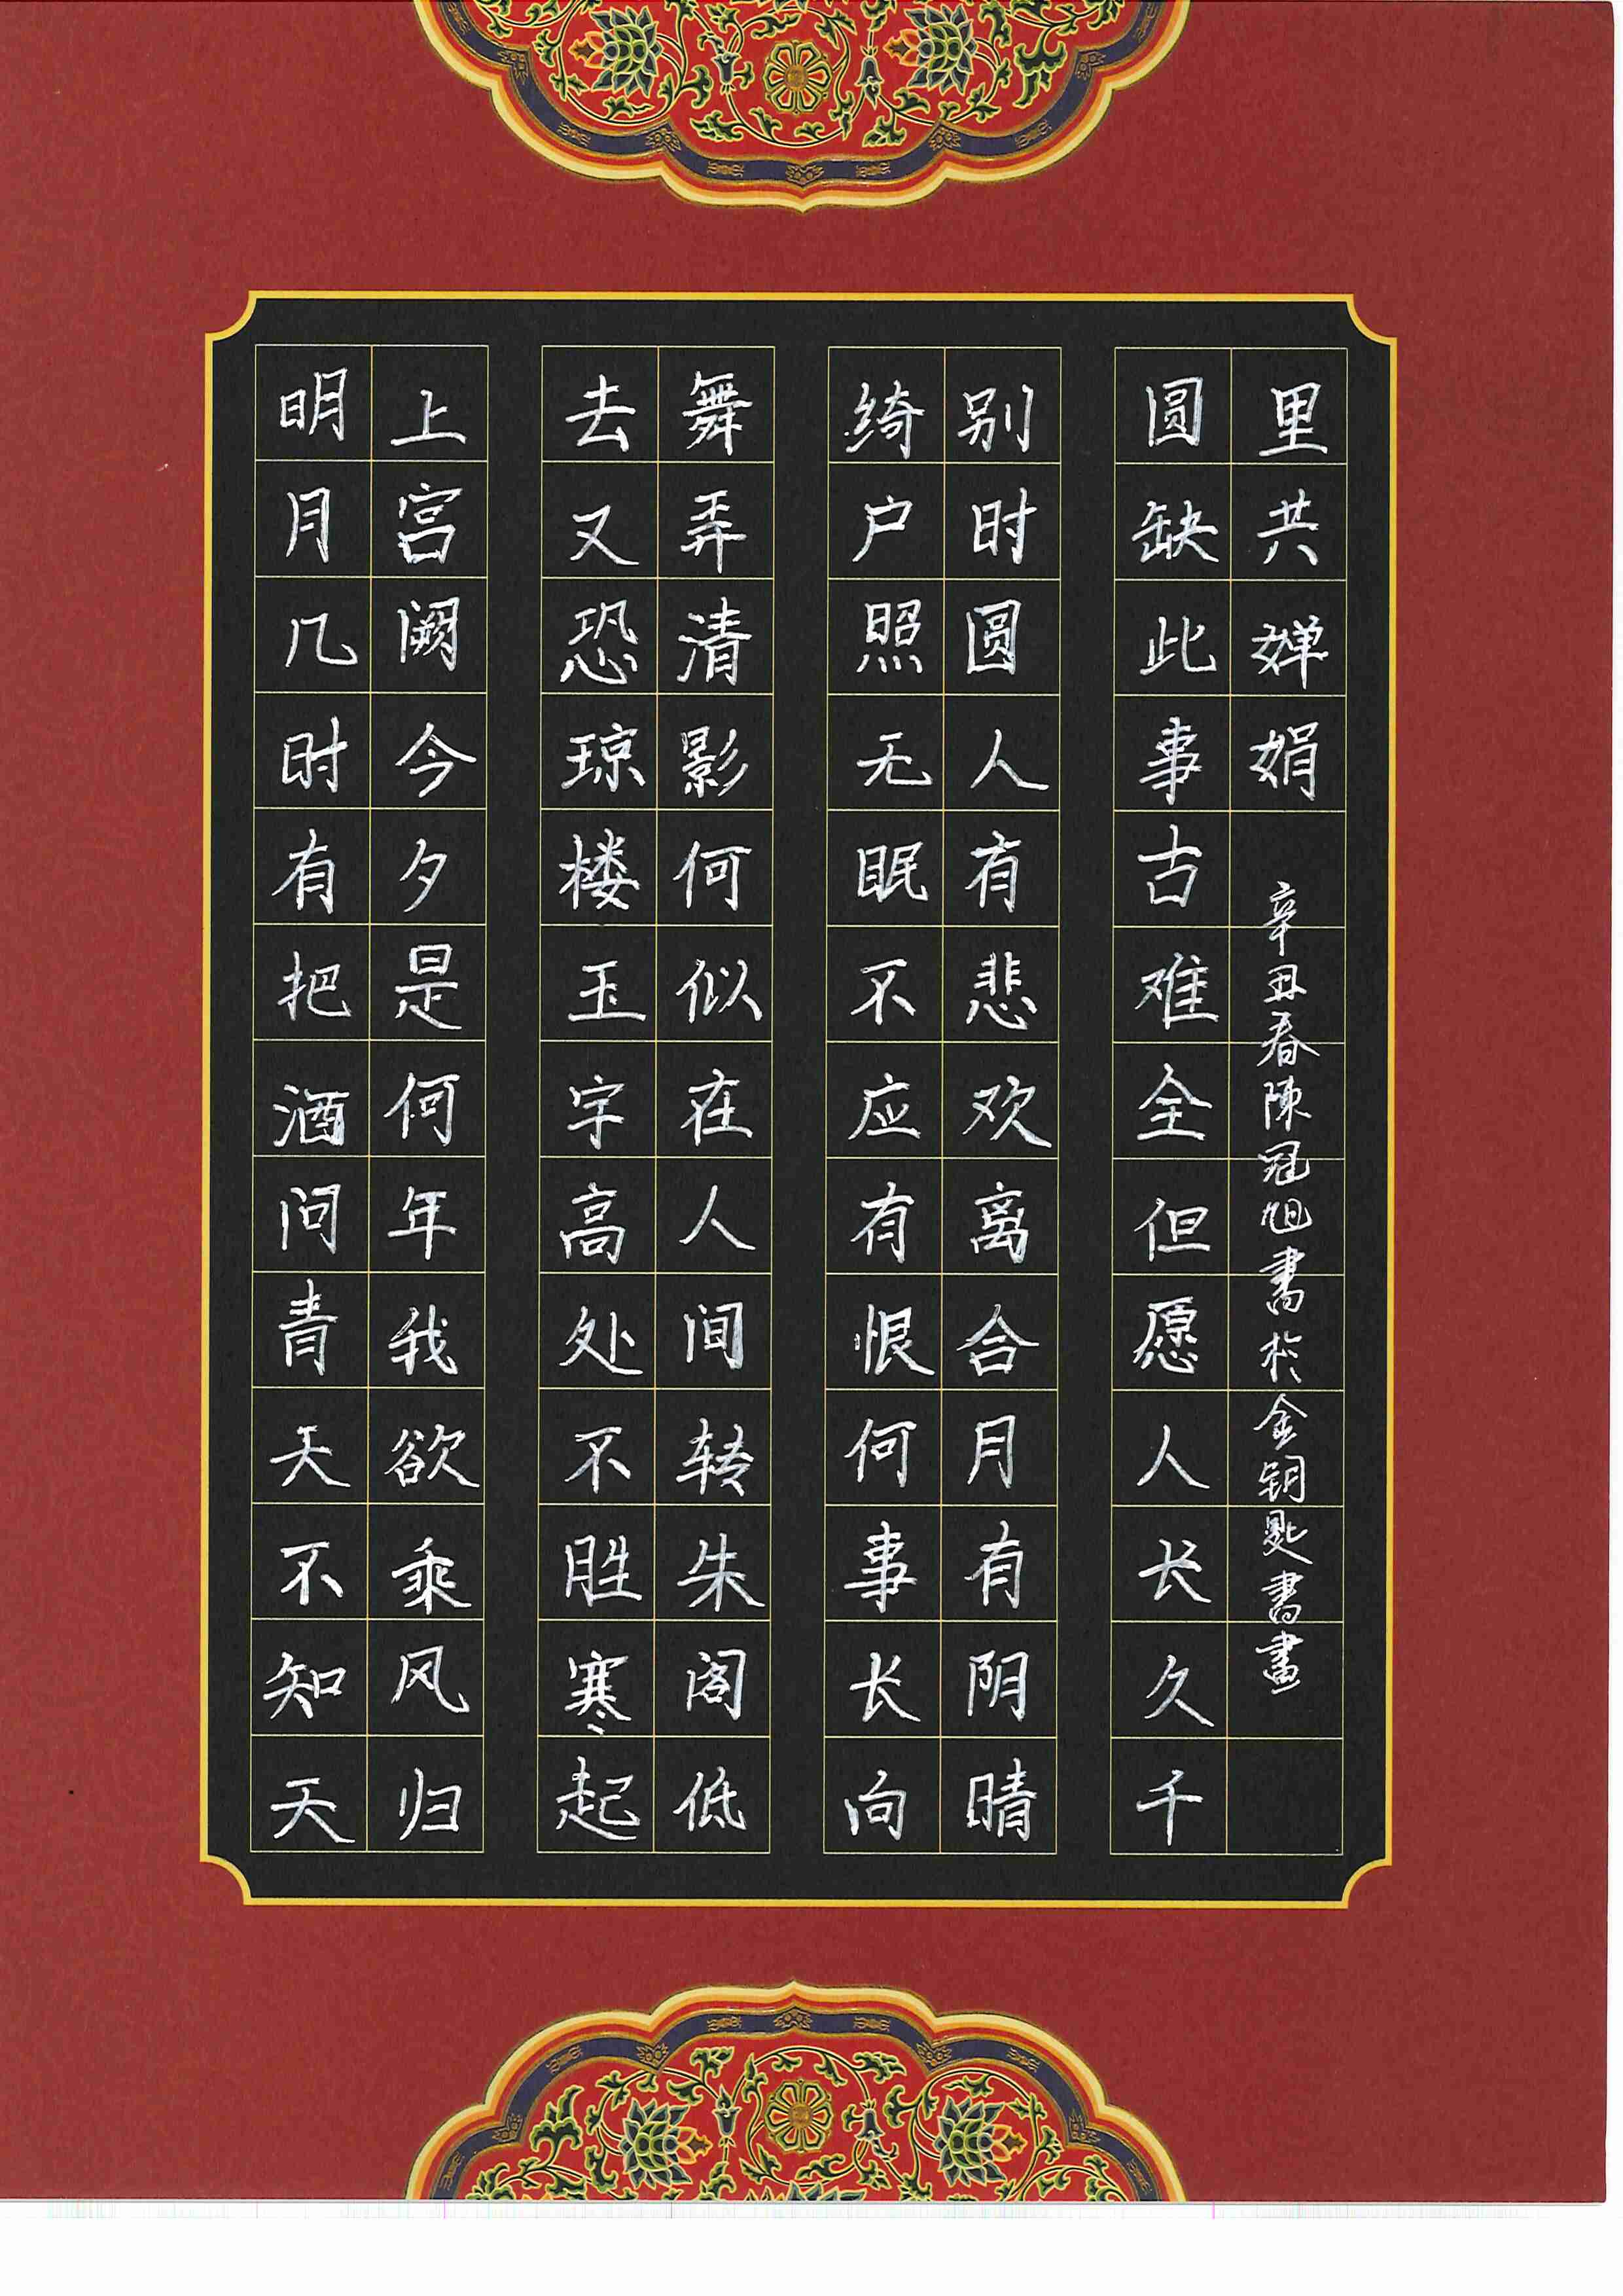 明月几时有把酒问青天不知天
上宫阙今夕是何年我欲乘风归
去又恐琼楼玉宇高处不胜寒起
舞弄清影何似在人间转朱阁低
绮户照无眠不应有恨何事长向
别时圆人有悲欢离合月有阴晴
圆缺此事古难全但愿人长久千
里共婵娟
辛丑春陳冠旭書於金钥匙書畫